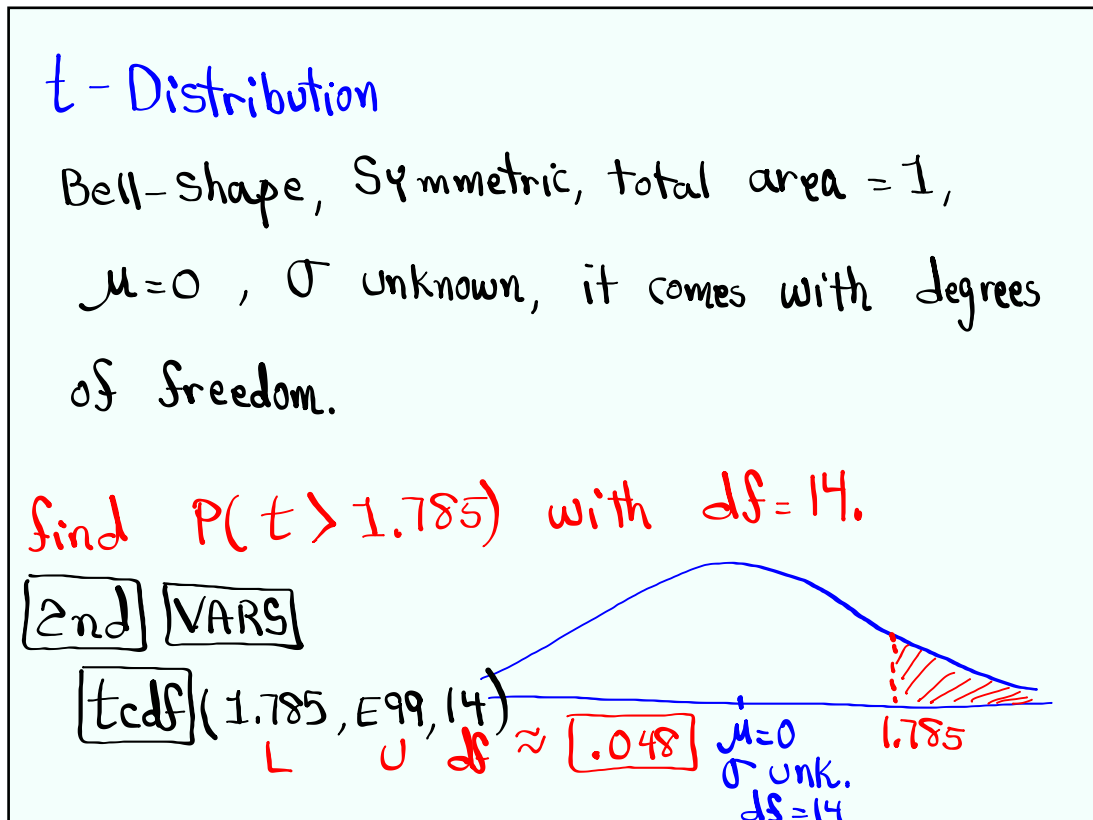 t - Distribution
Bell-Shape, Symmetric, total area = 1,
μ=0 , σ unknown, it comes with degrees
of freedom.
find P( t > 1.785) with df = 14.
2nd VARS
tcdf ( 1.785 , E99, 14)
L U df ≈ .048
μ=0 1.785
σ unk.
df = 14